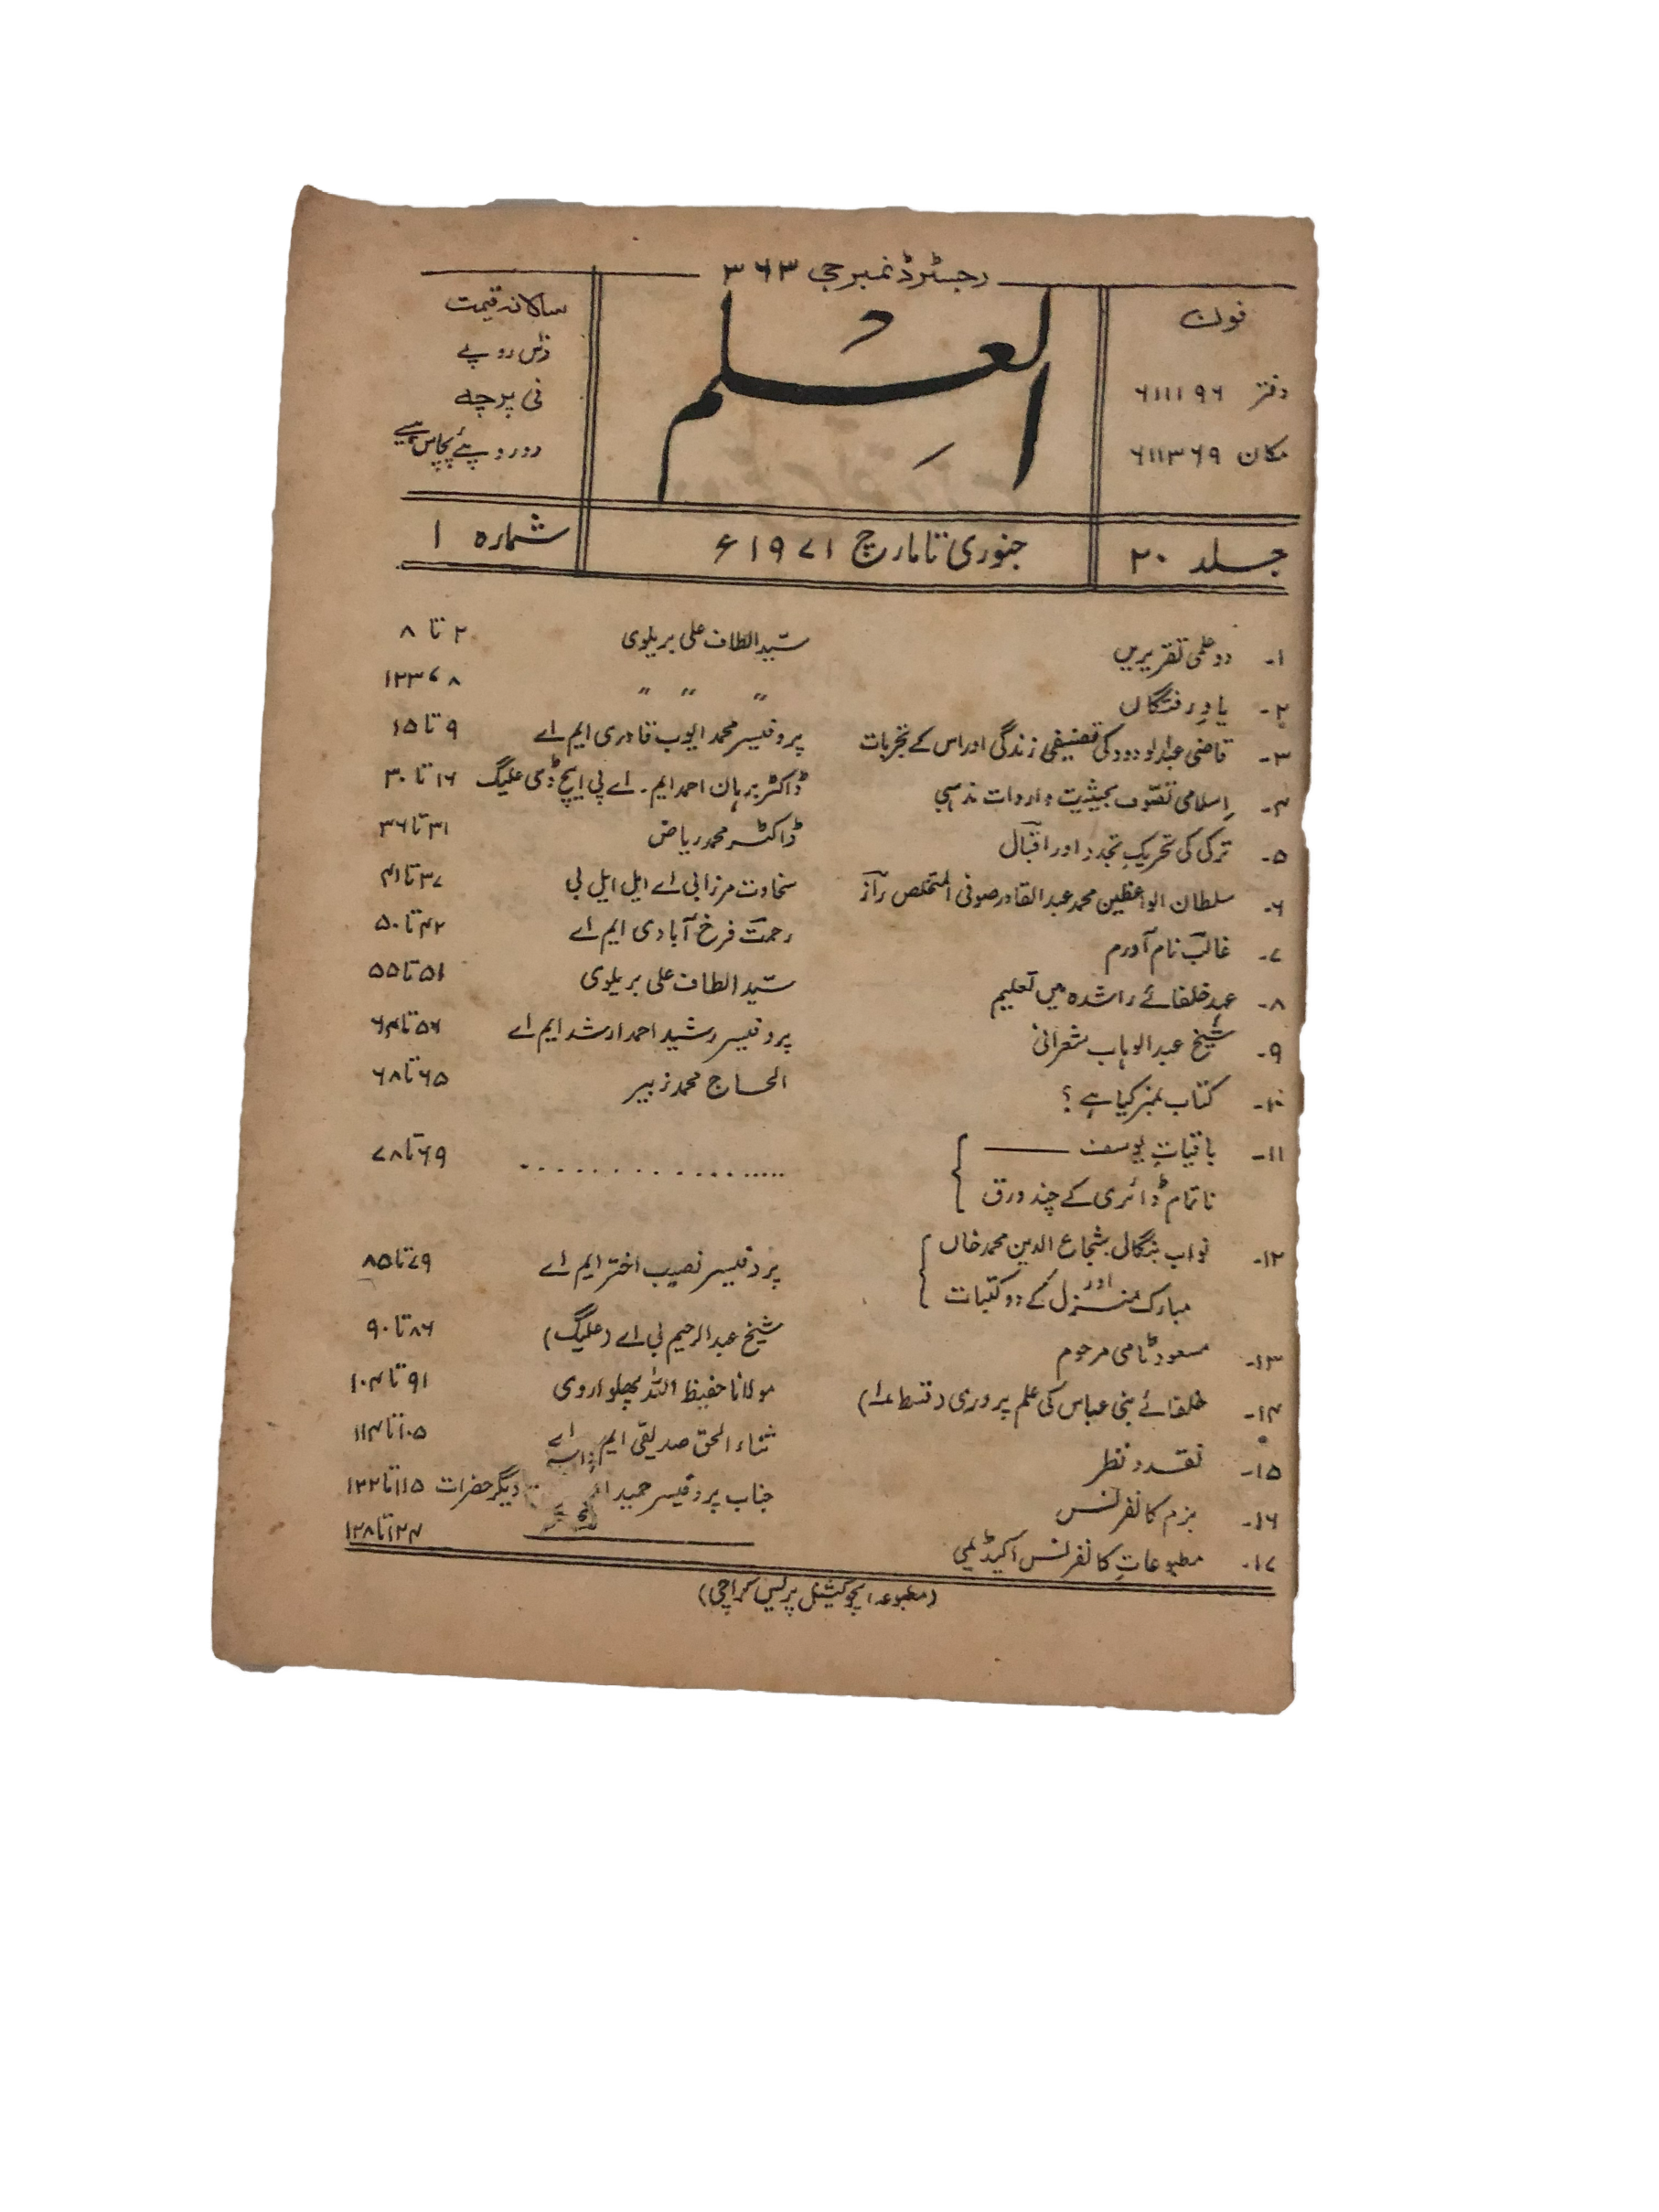 رجسٹرڈ نمبر جی ۳۶۳
فون
دفتر ۶۱۱۱۹۶
مکان ۶۱۱۳۶۹
العلم
سالانہ قیمت
دس روپے
فی پرچہ
دو روپئے پچاس پیسے
جلد ۲۰ جنوری تا مارچ ۱۹۷۱ء شمارہ ۱
۱۔ دو علمی تقریریں سید الطاف علی بریلوی ۲ تا ۸
۲۔ یادِ رفتگاں " " " ۸، ۱۲۳
۳۔ قاضی عبدالودود کی تصنیفی زندگی اور اس کے تجربات پروفیسر محمد ایوب قادری ایم اے ۹ تا ۱۵
۴۔ اِسلامی تصوّف بحیثیت واردات مذہبی ڈاکٹر برہان احمد ایم۔ اے پی ایچ ڈی علیگ ۱۶ تا ۳۰
۵۔ ترکی کی تحریکِ تجدد اور اقبال ڈاکٹر محمد ریاض ۳۱ تا ۳۶
۶۔ سلطان الواعظین محمد عبدالقادر صوفی المتخلص راز سخاوت مرزا بی اے ایل ایل بی ۳۷ تا ۴۱
۷۔ غالب نام آورم رحمت فرخ آبادی ایم اے ۴۲ تا ۵۰
۸۔ عہدِ خلفائے راشدہ میں تعلیم سید الطاف علی بریلوی ۵۱ تا ۵۵
۹۔ شیخ عبدالوہاب شعرانی پروفیسر رشید احمد ارشد ایم اے ۵۶ تا ۶۴
۱۰۔ کتاب نمبر کیا ہے ؟ الحاج محمد زبیر ۶۵ تا ۶۸
۱۱۔ باقیاتِ یوسف —— ................ ۶۹ تا ۷۸
ناتمام ڈائری کے چند ورق
۱۲۔ نواب بنگالی شجاع الدین محمد خاں پروفیسر نصیب اختر ایم اے ۷۹ تا ۸۵
اور
مبارک منزل کے دو کتبات
۱۳۔ مسعود ٹامی مرحوم شیخ عبدالرحیم بی اے (علیگ) ۸۶ تا ۹۰
۱۴۔ خلفائے بنی عباس کی علم پروری (قسط ۱) مولانا حفیظ اللہ پھلواروی ۹۱ تا ۱۰۴
۱۵۔ نقد و نظر ثناء الحق صدیقی ایم اے ۱۰۵ تا ۱۱۴
۱۶۔ بزم کانفرنس جناب پروفیسر حمید دیگر حضرات ۱۱۵ تا ۱۲۲
۱۷۔ مطبوعاتِ کانفرنس اکیڈیمی ۱۲۴ تا ۱۲۸
(مطبوعہ ایجوکیشنل پریس کراچی)